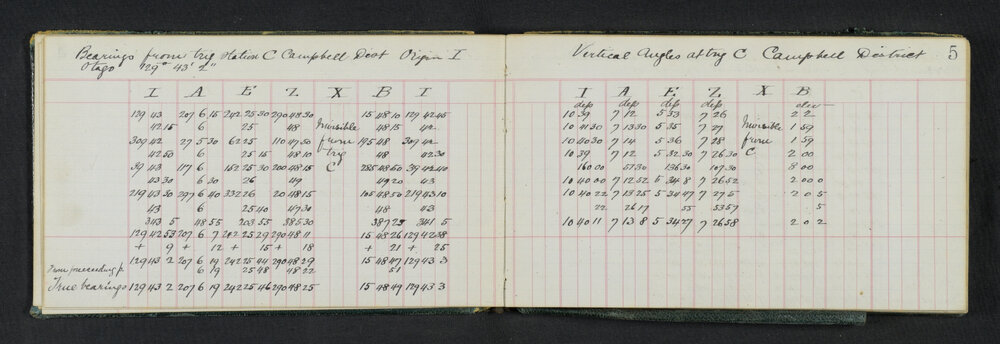 Bearings from trig station C Campbell Dist Origin I
Otago 129° 43' 2"
I A E Z X B I
129 43 207 6 15 242 25 30 290 48 30 15 48 10 129 42 45
42 15 6 25 48 Invisible 48 15 42
309 42 27 5 30 62 25 110 47 50 from 195 48 309 42
42 50 6 25 15 48 10 trig 48 42 30
39 43 117 6 152 25 30 200 48 15 C 285 48 50 39 42 40
43 30 6 30 26 49 49 20 43
219 43 30 297 6 40 332 26 20 48 15 105 48 50 219 43 10
43 6 25 40 47 30 48 43
343 5 48 55 203 55 385 30 387 25 341 5
129 42 53 207 6 7 242 25 29 290 48 11 15 48 26 129 42 38
+ 9 + 12 + 15 + 18 + 21 + 25
129 43 2 207 6 19 242 25 44 290 48 29 15 48 47 129 43 3
From preceeding p 6 19 25 48 48 22 51
True bearings 129 43 2 207 6 19 242 25 46 290 48 25 15 48 49 129 43 3
Vertical Angles at trig C Campbell District 5
I A E Z X B
dep dep dep dep elev
10 39 7 12 5 33 7 26 2 2
10 41 30 7 13 30 5 35 7 27 Invisible 1 59
10 40 30 7 14 5 36 7 28 from 1 59
10 39 7 12 5 32 30 7 26 30 C 2 00
160 00 51 30 136 30 107 30 8 00
10 40 00 7 12 52 5 34 8 7 26 52 2 00 0
10 40 22 7 13 25 5 34 47 7 27 5 2 0 5
22 26 17 55 53 57 .5
10 40 11 7 13 8 5 34 27 7 26 58 2 0 2